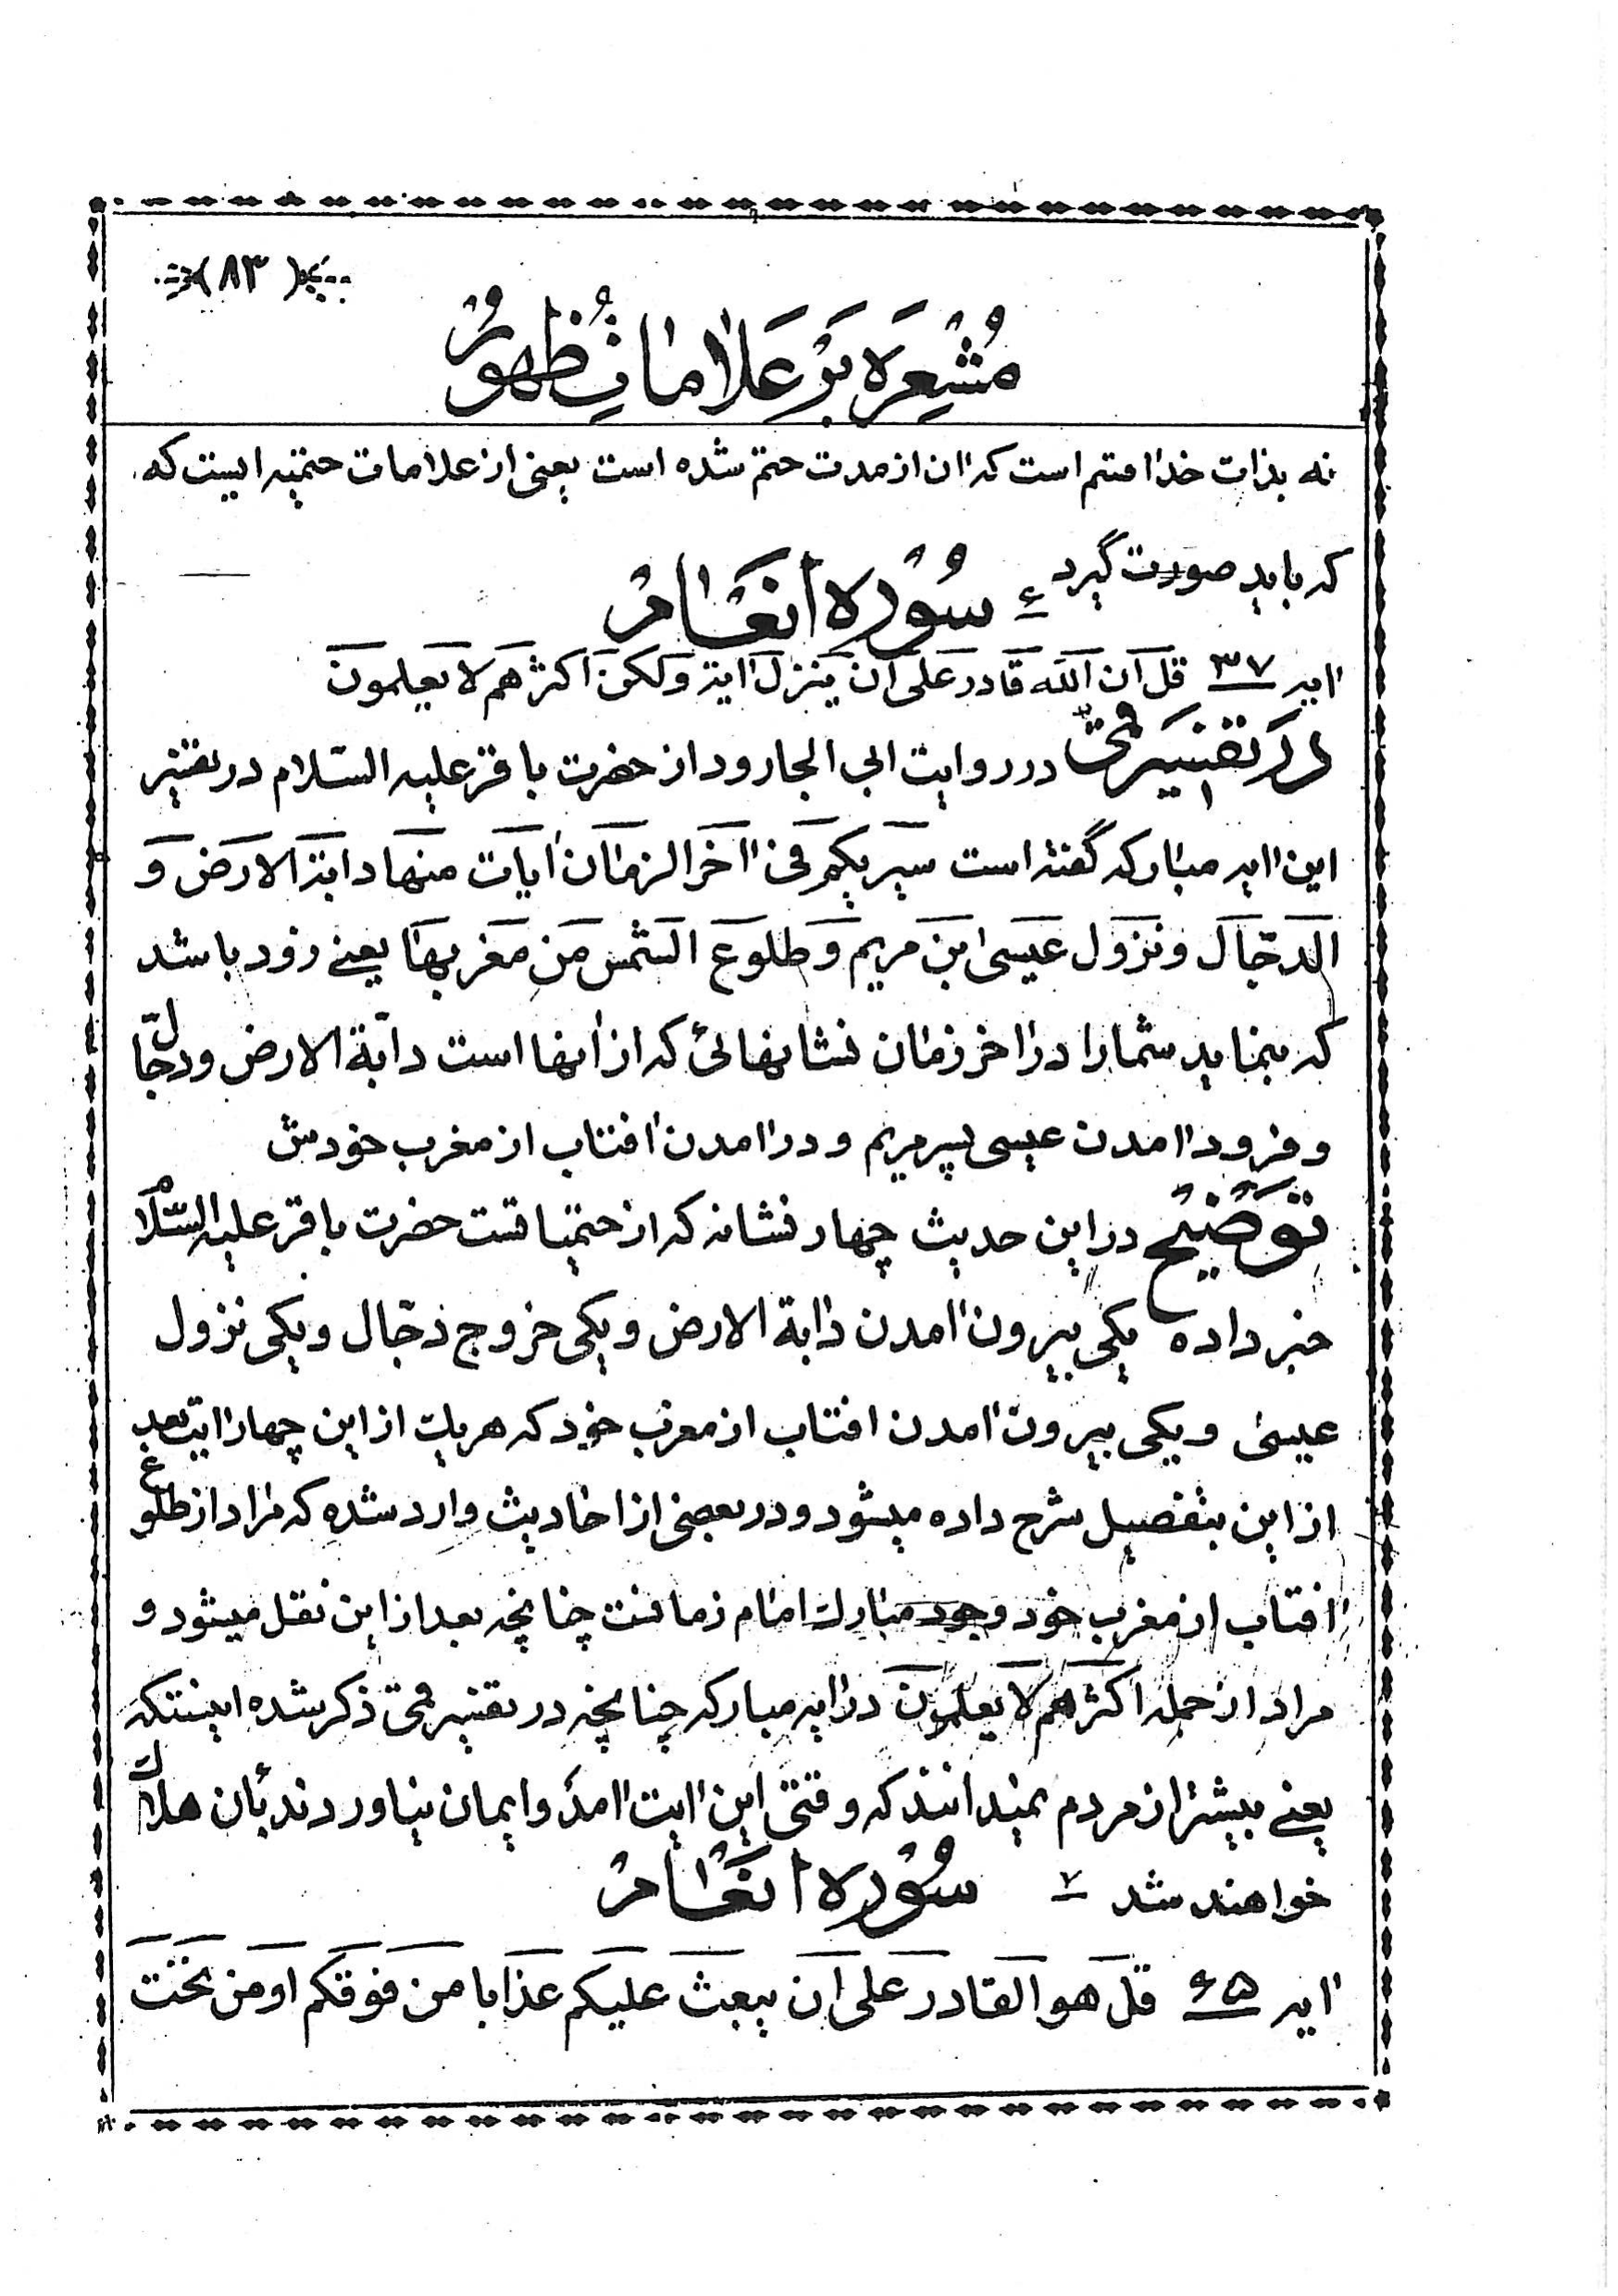 (۸۳)
مُشعِرَه بَر عَلاماتِ ظُهور
نه بذات خدا قسم است که اٰن از مدت حتم شده است یعنی از علامات حتمیّه ایست که
که باید صورت گیرد ۶ سُوره اَنعام
اٰیه ۳۷ قل ان الله قادر علی ان ینزل اٰیة ولکن اکثرهم لا یعلمون
در تفسیر قمی در روایت ابی الجارود از حضرت باقر علیه السّلام در تفسیر
این اٰیه مبارکه گفته است سیریکم فی اٰخر الزمان اٰیات منها دابة الارض و
الدجّال و نزول عیسی ابن مریم و طلوع الشمس من مغربها یعنے زود باشد
که بنماید شما را در اٰخر زمان نشانهائی که از اٰنها است دابّة الارض و دجّال
و فرود اٰمدن عیسی پسر مریم و در اٰمدن اٰفتاب از مغرب خودش
تَوضیح در این حدیث چهار نشانه که از حتمیاتست حضرت باقر علیه السّلام
خبر داده یکی بیرون اٰمدن دابة الارض و یکی خروج دجّال و یکی نزول
عیسیٰ و یکی بیرون اٰمدن افتاب از مغرب خود که هریك از این چهار اٰیت بعد
از این بتفصیل شرح داده میشود و در بعضی از احادیث وارد شده که مراد از طلوع
اٰفتاب از مغرب خود وجود مبارك امام زمانست چنانچه بعد از این نقل میشود و
مراد از جمله اکثرهم لا یعلمون در اٰیه مبارکه چنانچه در تفسیر قمی ذکر شده اینستکه
یعنے بیشتر از مردم نمیدانند که وقتی این اٰیت اٰمد و ایمان نیاوردند بٰان هلاك
خواهند شد ۷ سُوره اَنعام
اٰیه ۶۵ قل هو القادر علی ان یبعث علیکم عذابا من فوقکم او من تحت